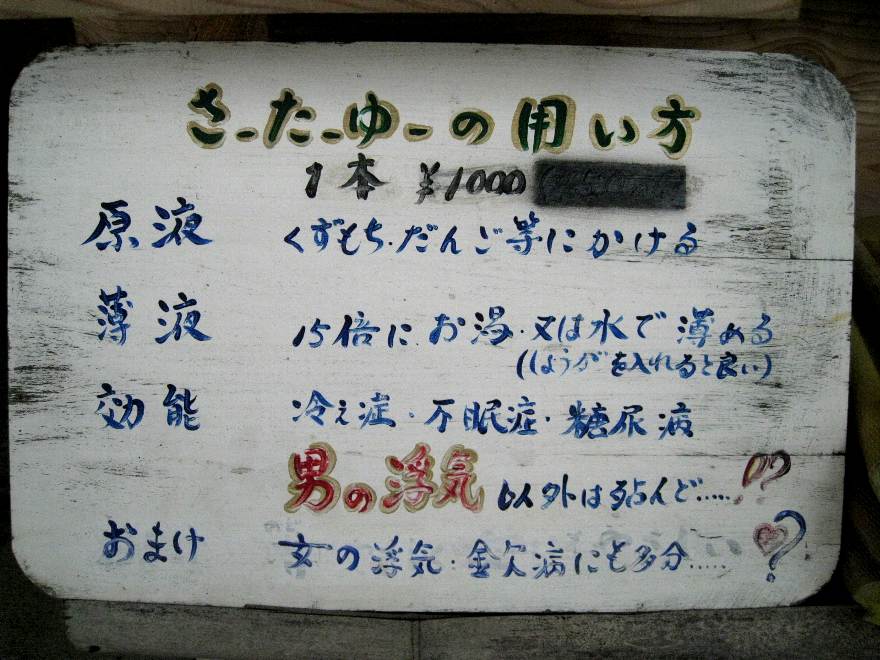 さーたーゆーの用い方
1本 ¥1000
原液 くずもち・だんご等にかける
薄液 15倍に お湯・又は水で薄める
(しょうがを入れると良い)
効能 冷え症・不眠症・糖尿病
男の浮気 以外は殆んど.....!?
おまけ 女の浮気・金欠病にも多分.....?